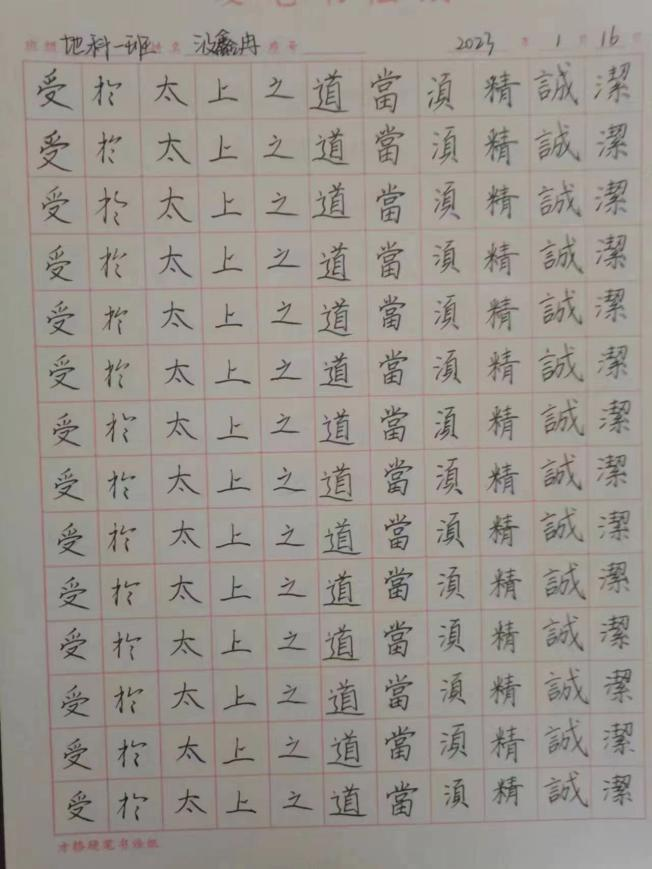 班级 地科一班 姓名 座号 2023 年 1 月 16 日
受於太上之道當湏精誠潔
受於太上之道當湏精誠潔
受於太上之道當湏精誠潔
受於太上之道當湏精誠潔
受於太上之道當湏精誠潔
受於太上之道當湏精誠潔
受於太上之道當湏精誠潔
受於太上之道當湏精誠潔
受於太上之道當湏精誠潔
受於太上之道當湏精誠潔
受於太上之道當湏精誠潔
受於太上之道當湏精誠潔
受於太上之道當湏精誠潔
受於太上之道當湏精誠潔
方格硬笔书法纸